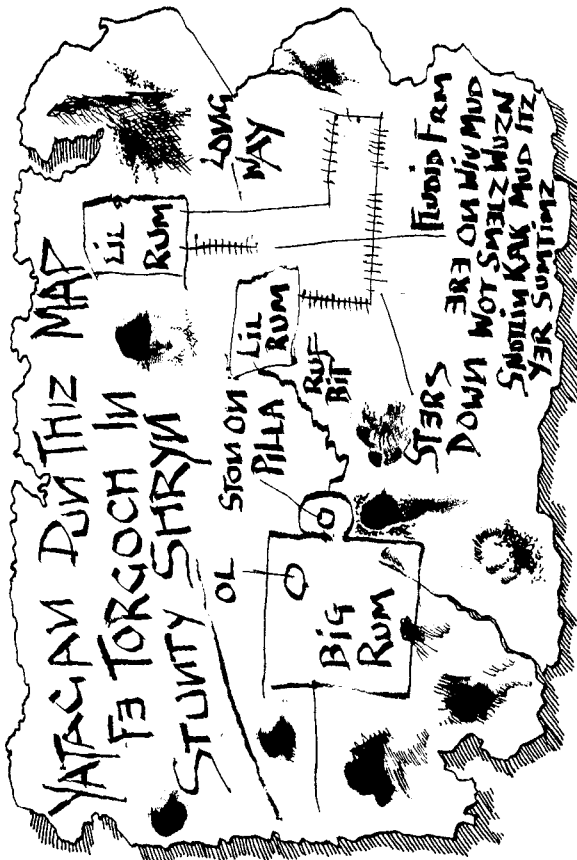 YATAGAN DUN THIZ MAP
FE TORGOCH IN
STUNTY SHRYN
LIL
RUM
LONG
WAY
OL
STON ON
PILLA
LIL
RUM
RUF
BIT
BIG
RUM
STERS
DOWN
FLUDID FRM
ERE ON WIV MUD
WOT SMELZ WUZN
SNOTLIN KAK MUD ITZ
YER SUMTIMZ